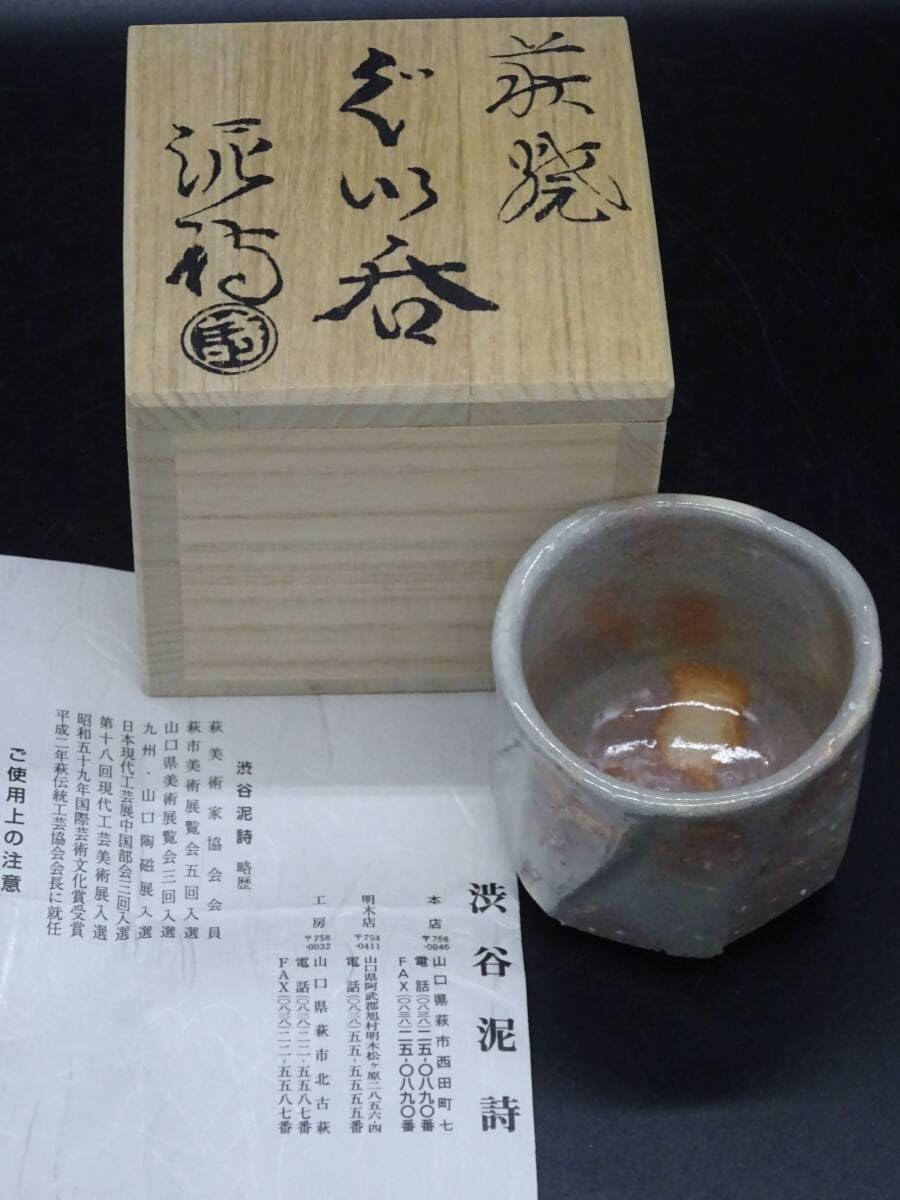 萩焼
ぐい呑
泥詩
渋谷泥詩
本店
〒758-0046
山口県萩市西田町七
電話(〇八三八)二五-〇八九〇番
FAX(〇八三八)二五-〇八九〇番
明木店
〒754-0411
山口県阿武郡旭村明木松ヶ原二八五六-四
電話(〇八三八)五五-五五五五番
工房
〒758-0032
山口県萩市北古萩
電話(〇八三八)二二-五五八七番
FAX(〇八三八)二二-五五八七番
渋谷泥詩 略歴
萩美術家協会会員
萩市美術展覧会五回入選
山口県美術展覧会三回入選
九州・山口陶磁展入選
日本現代工芸展中国部会三回入選
第十八回現代工芸美術展入選
昭和五十九年国際芸術文化賞受賞
平成二年萩伝統工芸協会会長に就任
ご使用上の注意